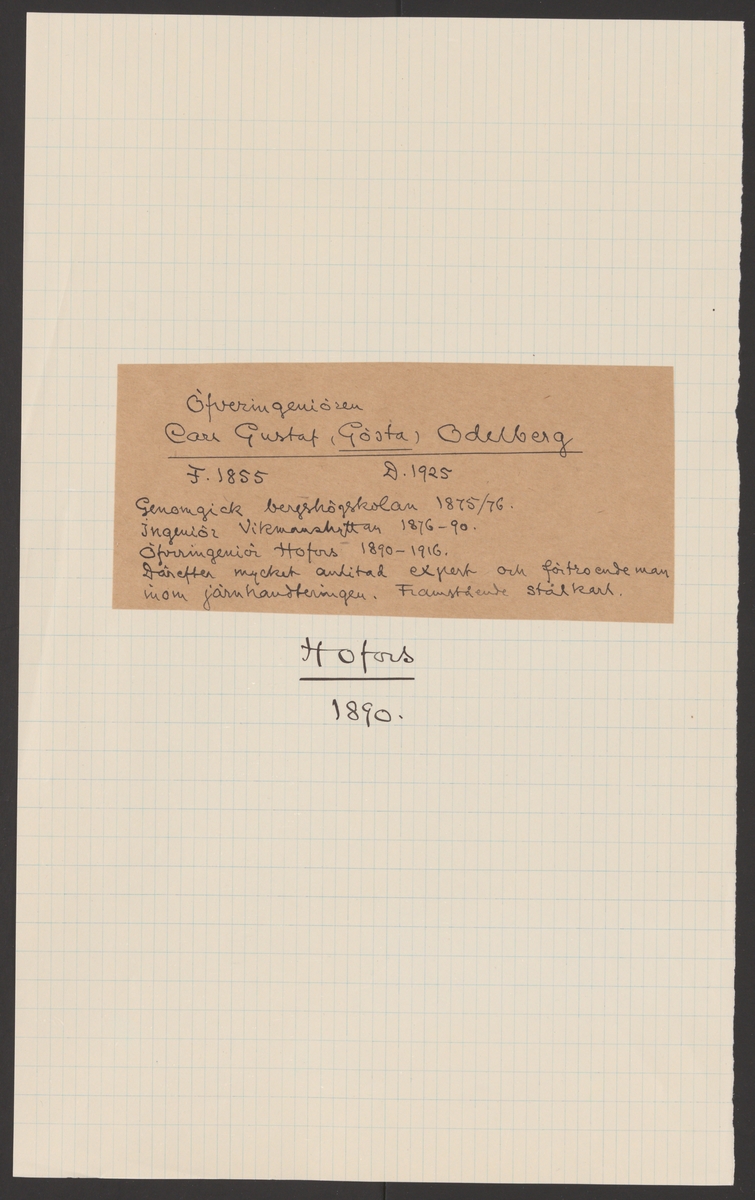 Öfveringeniören
Carl Gustaf (Gösta) Odelberg
F. 1855 D. 1925
Genomgick bergshögskolan 1875/76.
Ingeniör Vikmanshyttan 1876-90.
Öfveringeniör Hofors 1890-1916.
Därefter mycket anlitad expert och förtroendeman
inom järnhandteringen. Framstående stålkarl.
Hofors
1890.